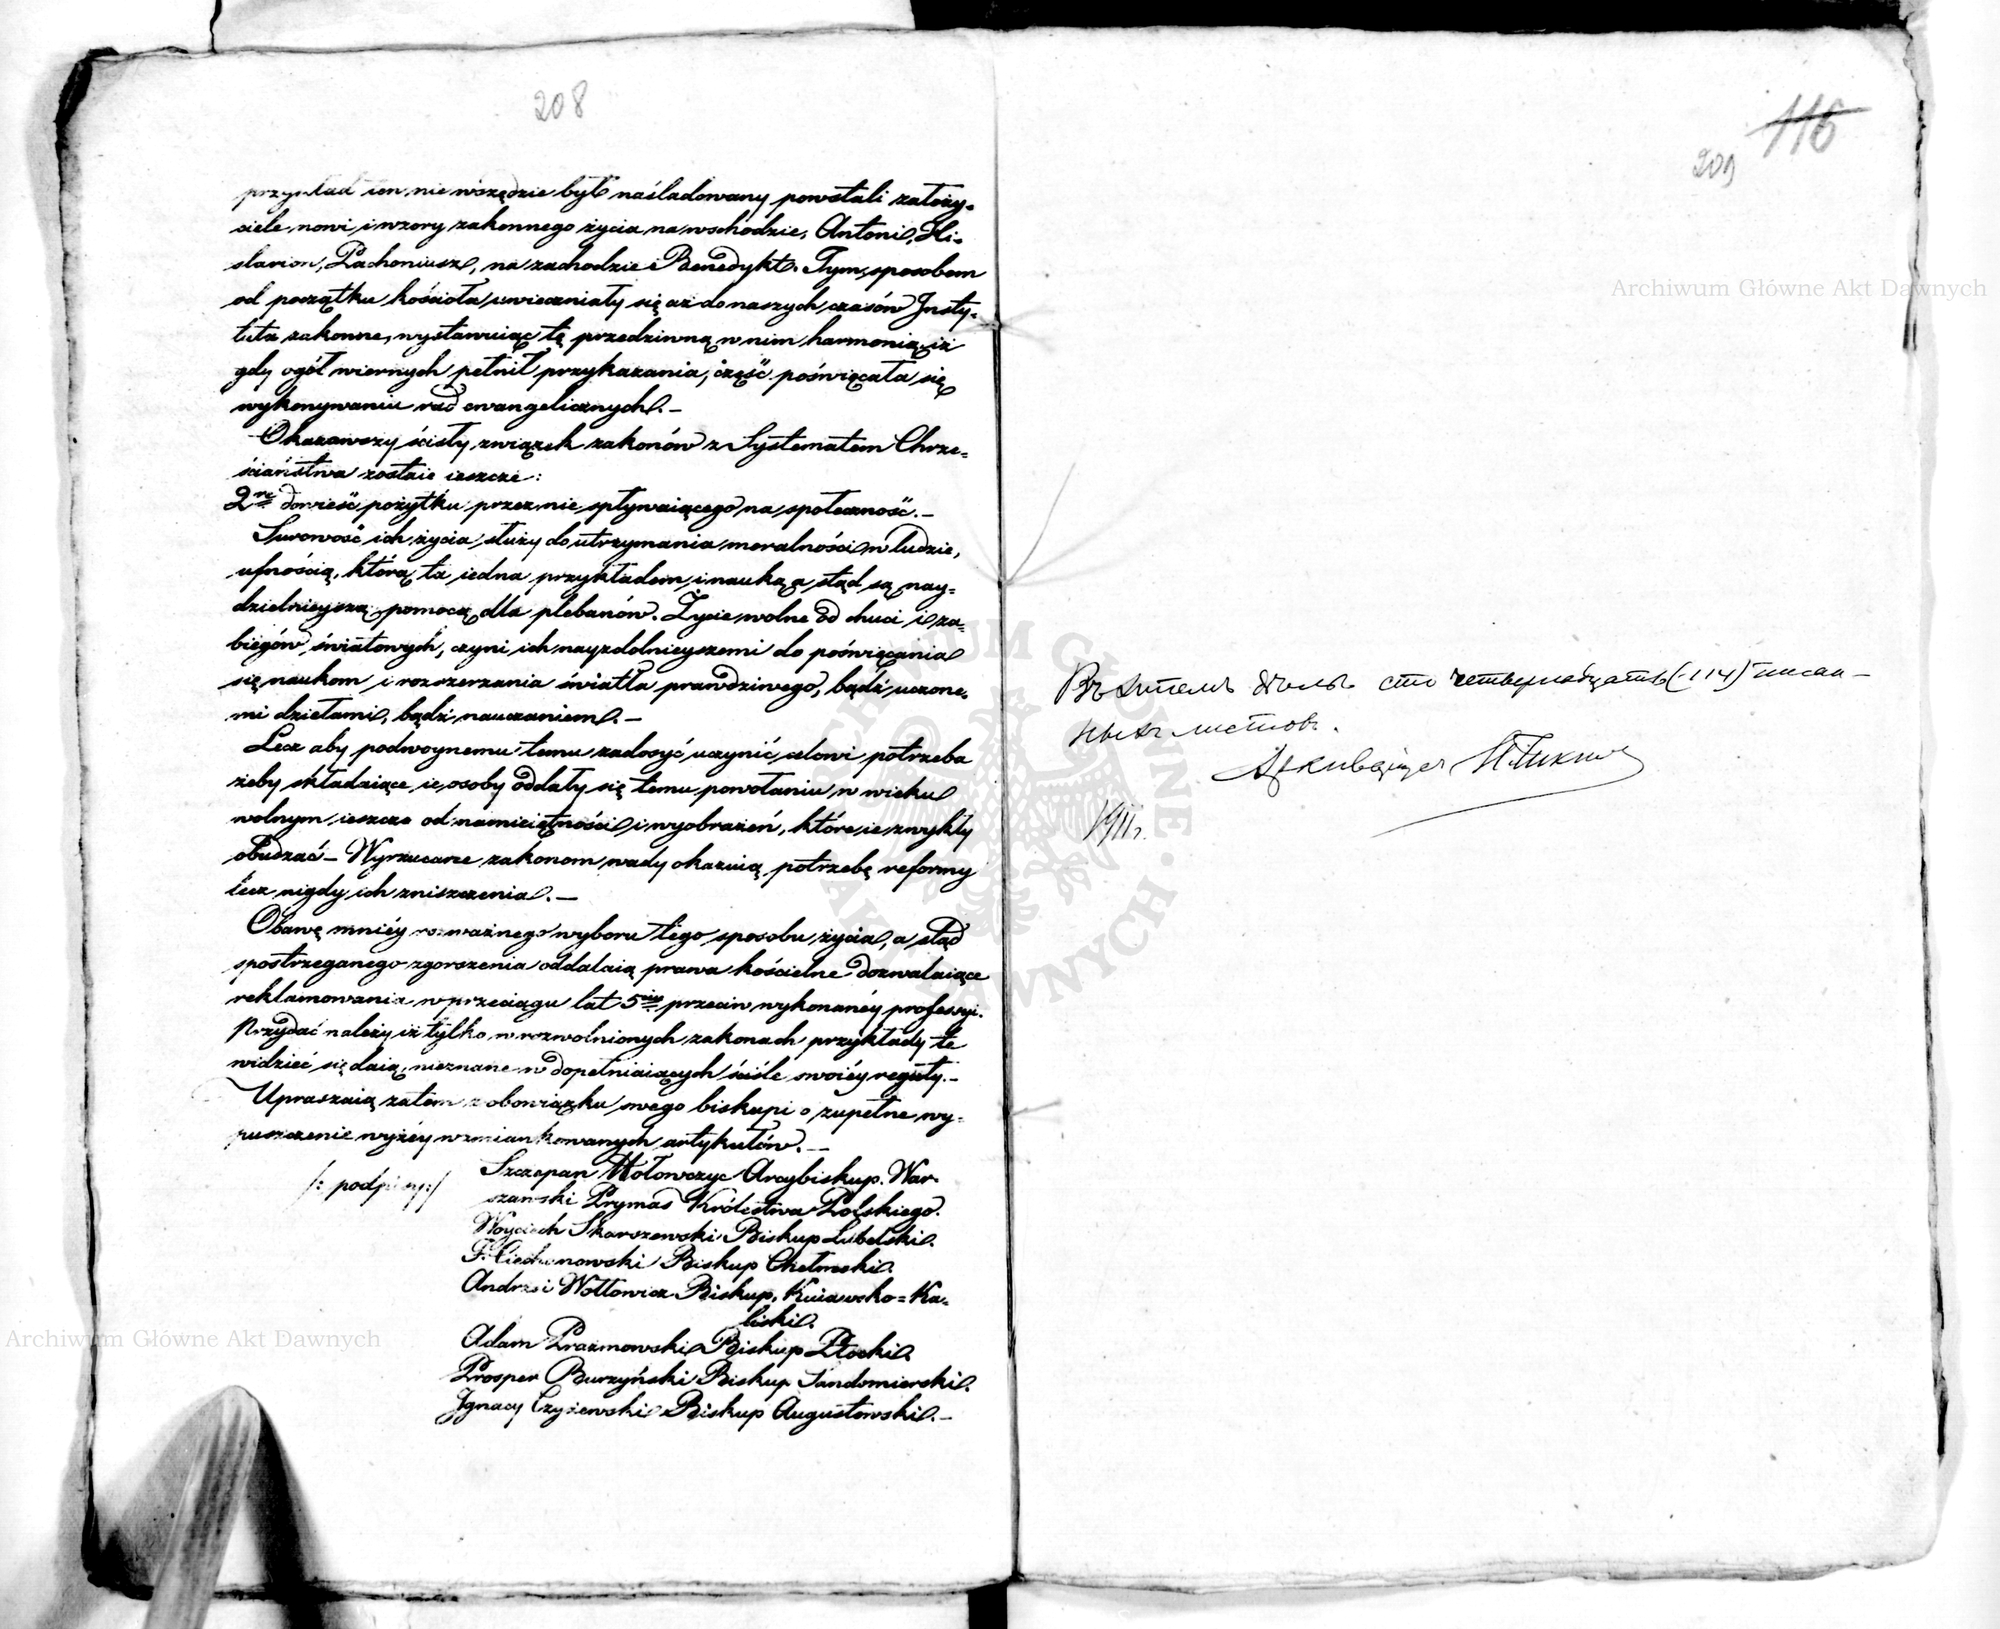 208
przykład ten nie wszędzie był naśladowany powstali założy=
ciele nowi i wzory zakonnego życia na wschodzie, Antoni, Hi=
slarion, Pachoniusz, na zachodzie Benedykt. Tym sposobem
od początku kościoła uwieczniały się aż do naszych czasów Insty=
tuta zakonne, wystawuiąc tę przedziwną w nim harmonią iż
gdy ogół wiernych pełnił przykazania, część poświęcała się
wykonywaniu rad ewangelicznych. –
Okazawszy ścisły związek zakonów z Systematem Chrze=
ściaństwa zostaie ieszcze:
2re dowieść pożytku przez nie spływaiącego na społeczność. –
Surowość ich życia służy do utrzymania moralności w ludzie,
ufnością, którą ta iedna przykładem i nauką, a stąd są nay=
dzielnieyszą pomocą dla plebanów. Życie wolne od chuci i za=
biegów światowych, czyni ich nayzdolnieyszemi do poświęcania
się naukom i rozszerzania światła prawdziwego, bądź uczone=
mi dziełami, bądź nauczaniem. –
Lecz aby podwoynemu temu zadosyć uczynić celowi potrzeba
żeby składaiące ie osoby oddały się temu powołaniu w wieku
wolnym ieszcze od namiętności i wyobrażeń, które ie zwykły
obudzać – Wyrzucane zakonom wady okazuią potrzebę reformy
lecz nigdy ich zniszczenia. –
Obawę mniéy rozważnego wyboru tego sposobu życia, a stąd
spostrzeganego zgorszenia oddalaią prawa kościelne dozwalaiące
reklamowania w przeciągu lat 5ciu przeciw wykonanéy professyi.
Przydać należy iż tylko w rozwolnionych zakonach przykłady te
widzieć się daią, nieznane w dopełniaiących ściśle swoiéy reguły. –
Upraszaią zatem z obowiązku swego biskupi o zupełne wy=
puszczenie wyżéy wzmiankowanych artykułów. –
/: podpisy :/ Szczepan Hołowczyc Arcybiskup War=
szawski Prymas Królestwa Polskiego.
Woyciech Skarszewski Biskup Lubelski.
F. Ciechanowski Biskup Chełmski.
Andrzéi Wołłowicz Biskup Kuiawsko=Ka=
liski.
Adam Prażmowski Biskup Płocki.
Prosper Burzyński Biskup Sandomierski.
Ignacy Czyżewski Biskup Augustowski. –
116
209
Въ этомъ дѣлѣ сто четырнадцать (114) писан-
ныхъ листовъ.
Архиваріусъ
1911г.
Archiwum Główne Akt Dawnych
Archiwum Główne Akt Dawnych
ARCHIWUM GŁÓWNE AKT DAWNYCH